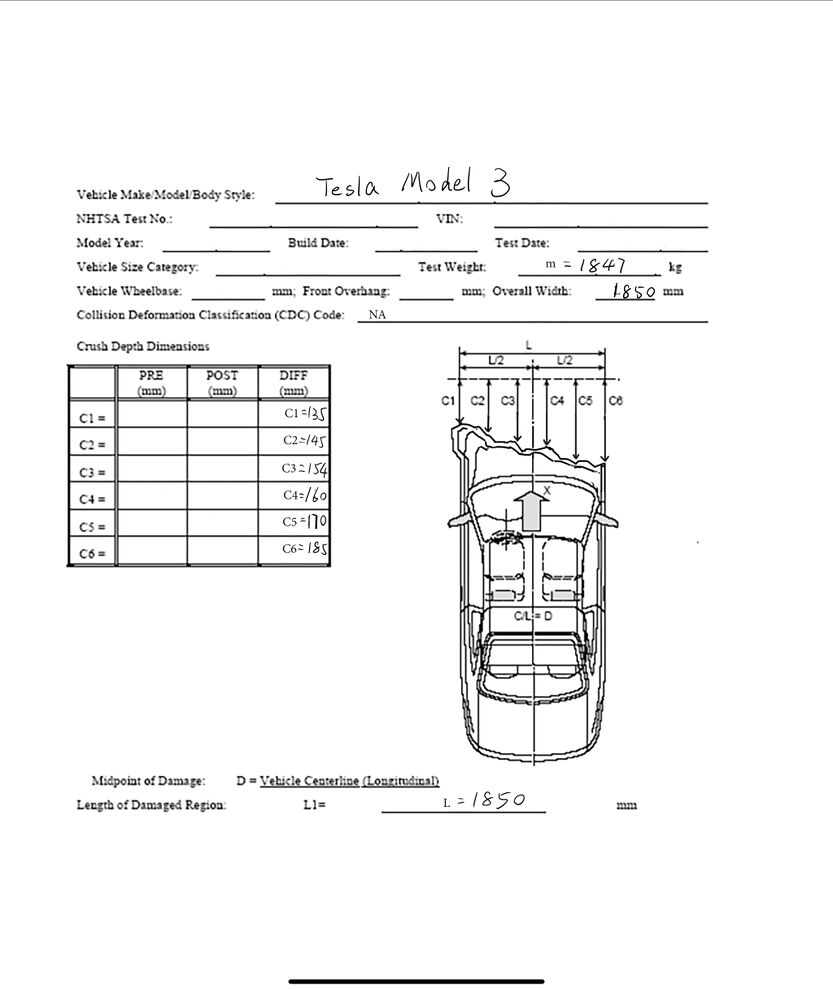 Vehicle Make/Model/Body Style: Tesla Model 3
NHTSA Test No.: VIN:
Model Year: Build Date: Test Date:
Vehicle Size Category: Test Weight: m = 1847 kg
Vehicle Wheelbase: mm; Front Overhang: mm; Overall Width: 1850 mm
Collision Deformation Classification (CDC) Code: NA
Crush Depth Dimensions
PRE (mm) POST (mm) DIFF (mm)
C1 = C1=135
C2 = C2=145
C3 = C3=154
C4 = C4=160
C5 = C5=170
C6 = C6=185
L
L/2 L/2
C1 C2 C3 C4 C5 C6
X
C/L = D
Midpoint of Damage: D = Vehicle Centerline (Longitudinal)
Length of Damaged Region: L1= L = 1850 mm